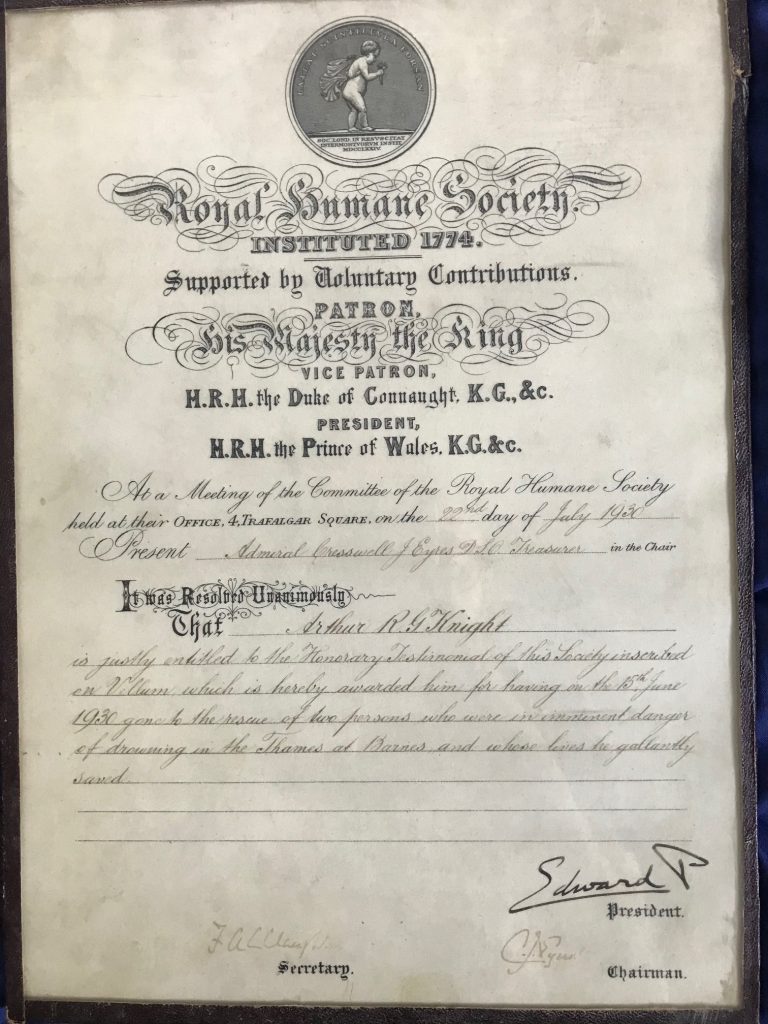 LATEAT SCINTILLVLA FORSAN
SOC. LOND. IN RESVSCITAT
INTERMORTVORVM INSTIT.
MDCCLXXIV.
Royal Humane Society.
INSTITUTED 1774.
Supported by Voluntary Contributions.
PATRON,
His Majesty the King
VICE PATRON,
H.R.H. the Duke of Connaught, K.G., &c.
PRESIDENT,
H.R.H. the Prince of Wales, K.G. &c.
At a Meeting of the Committee of the Royal Humane Society
held at their OFFICE, 4, TRAFALGAR SQUARE, on the 22nd day of July 1930
Present Admiral Cresswell J Eyres D.S.O. Treasurer in the Chair
It was Resolved Unanimously
That Arthur R. G Knight
is justly entitled to the Honorary Testimonial of this Society inscribed
on Vellum, which is hereby awarded him for having on the 15th June
1930 gone to the rescue of two persons who were in imminent danger
of drowning in the Thames at Barnes and whose lives he gallantly
saved.
Edward P
President.
C. J. Eyres
Secretary. Chairman.